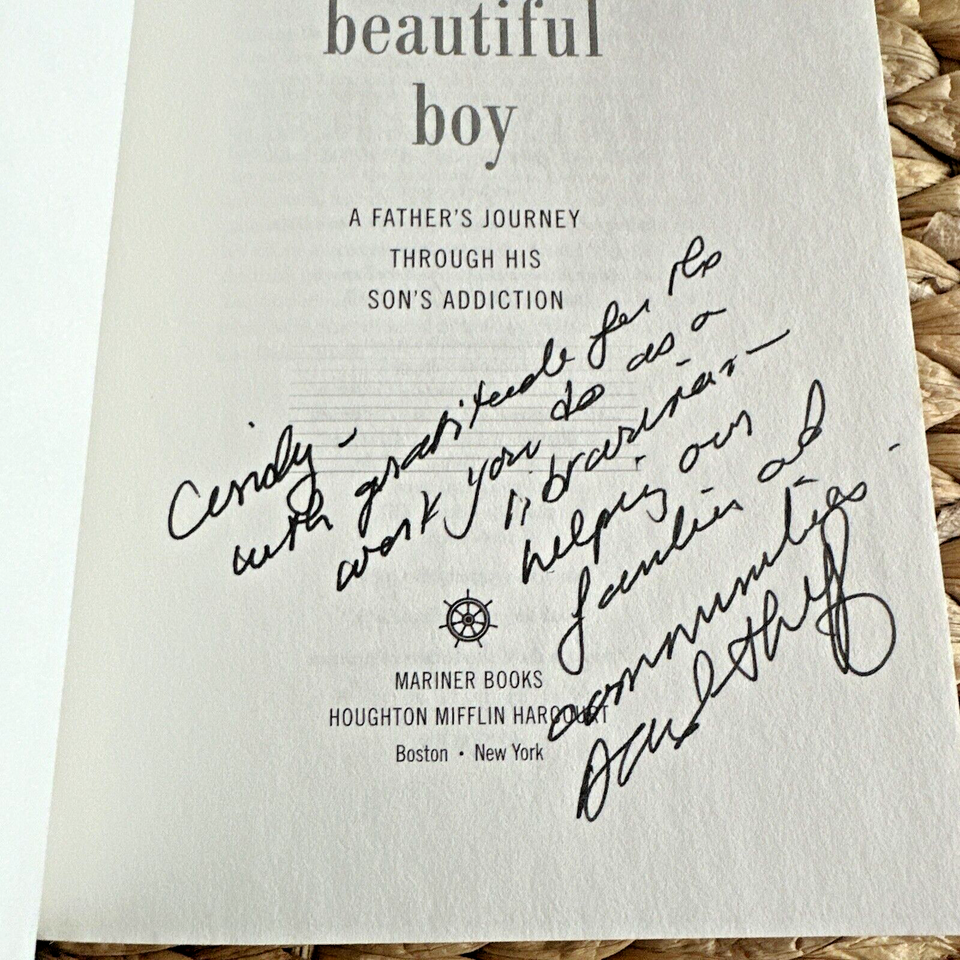 beautiful
boy
A FATHER'S JOURNEY
THROUGH HIS
SON'S ADDICTION
Cindy -
with gratitude for the
work you do as a
librarian -
helping our
families and
communities -
David Sheff
MARINER BOOKS
HOUGHTON MIFFLIN HARCOURT
Boston • New York